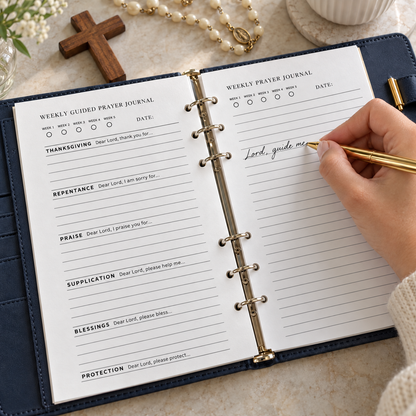 WEEKLY GUIDED PRAYER JOURNAL
WEEK 1 WEEK 2 WEEK 3 WEEK 4 WEEK 5
DATE:
THANKSGIVING Dear Lord, thank you for...
REPENTANCE Dear Lord, I am sorry for...
PRAISE Dear Lord, I praise you for...
SUPPLICATION Dear Lord, please help me...
BLESSINGS Dear Lord, please bless...
PROTECTION Dear Lord, please protect...
WEEKLY PRAYER JOURNAL
WEEK 1 WEEK 2 WEEK 3 WEEK 4 WEEK 5
DATE:
Lord, guide me